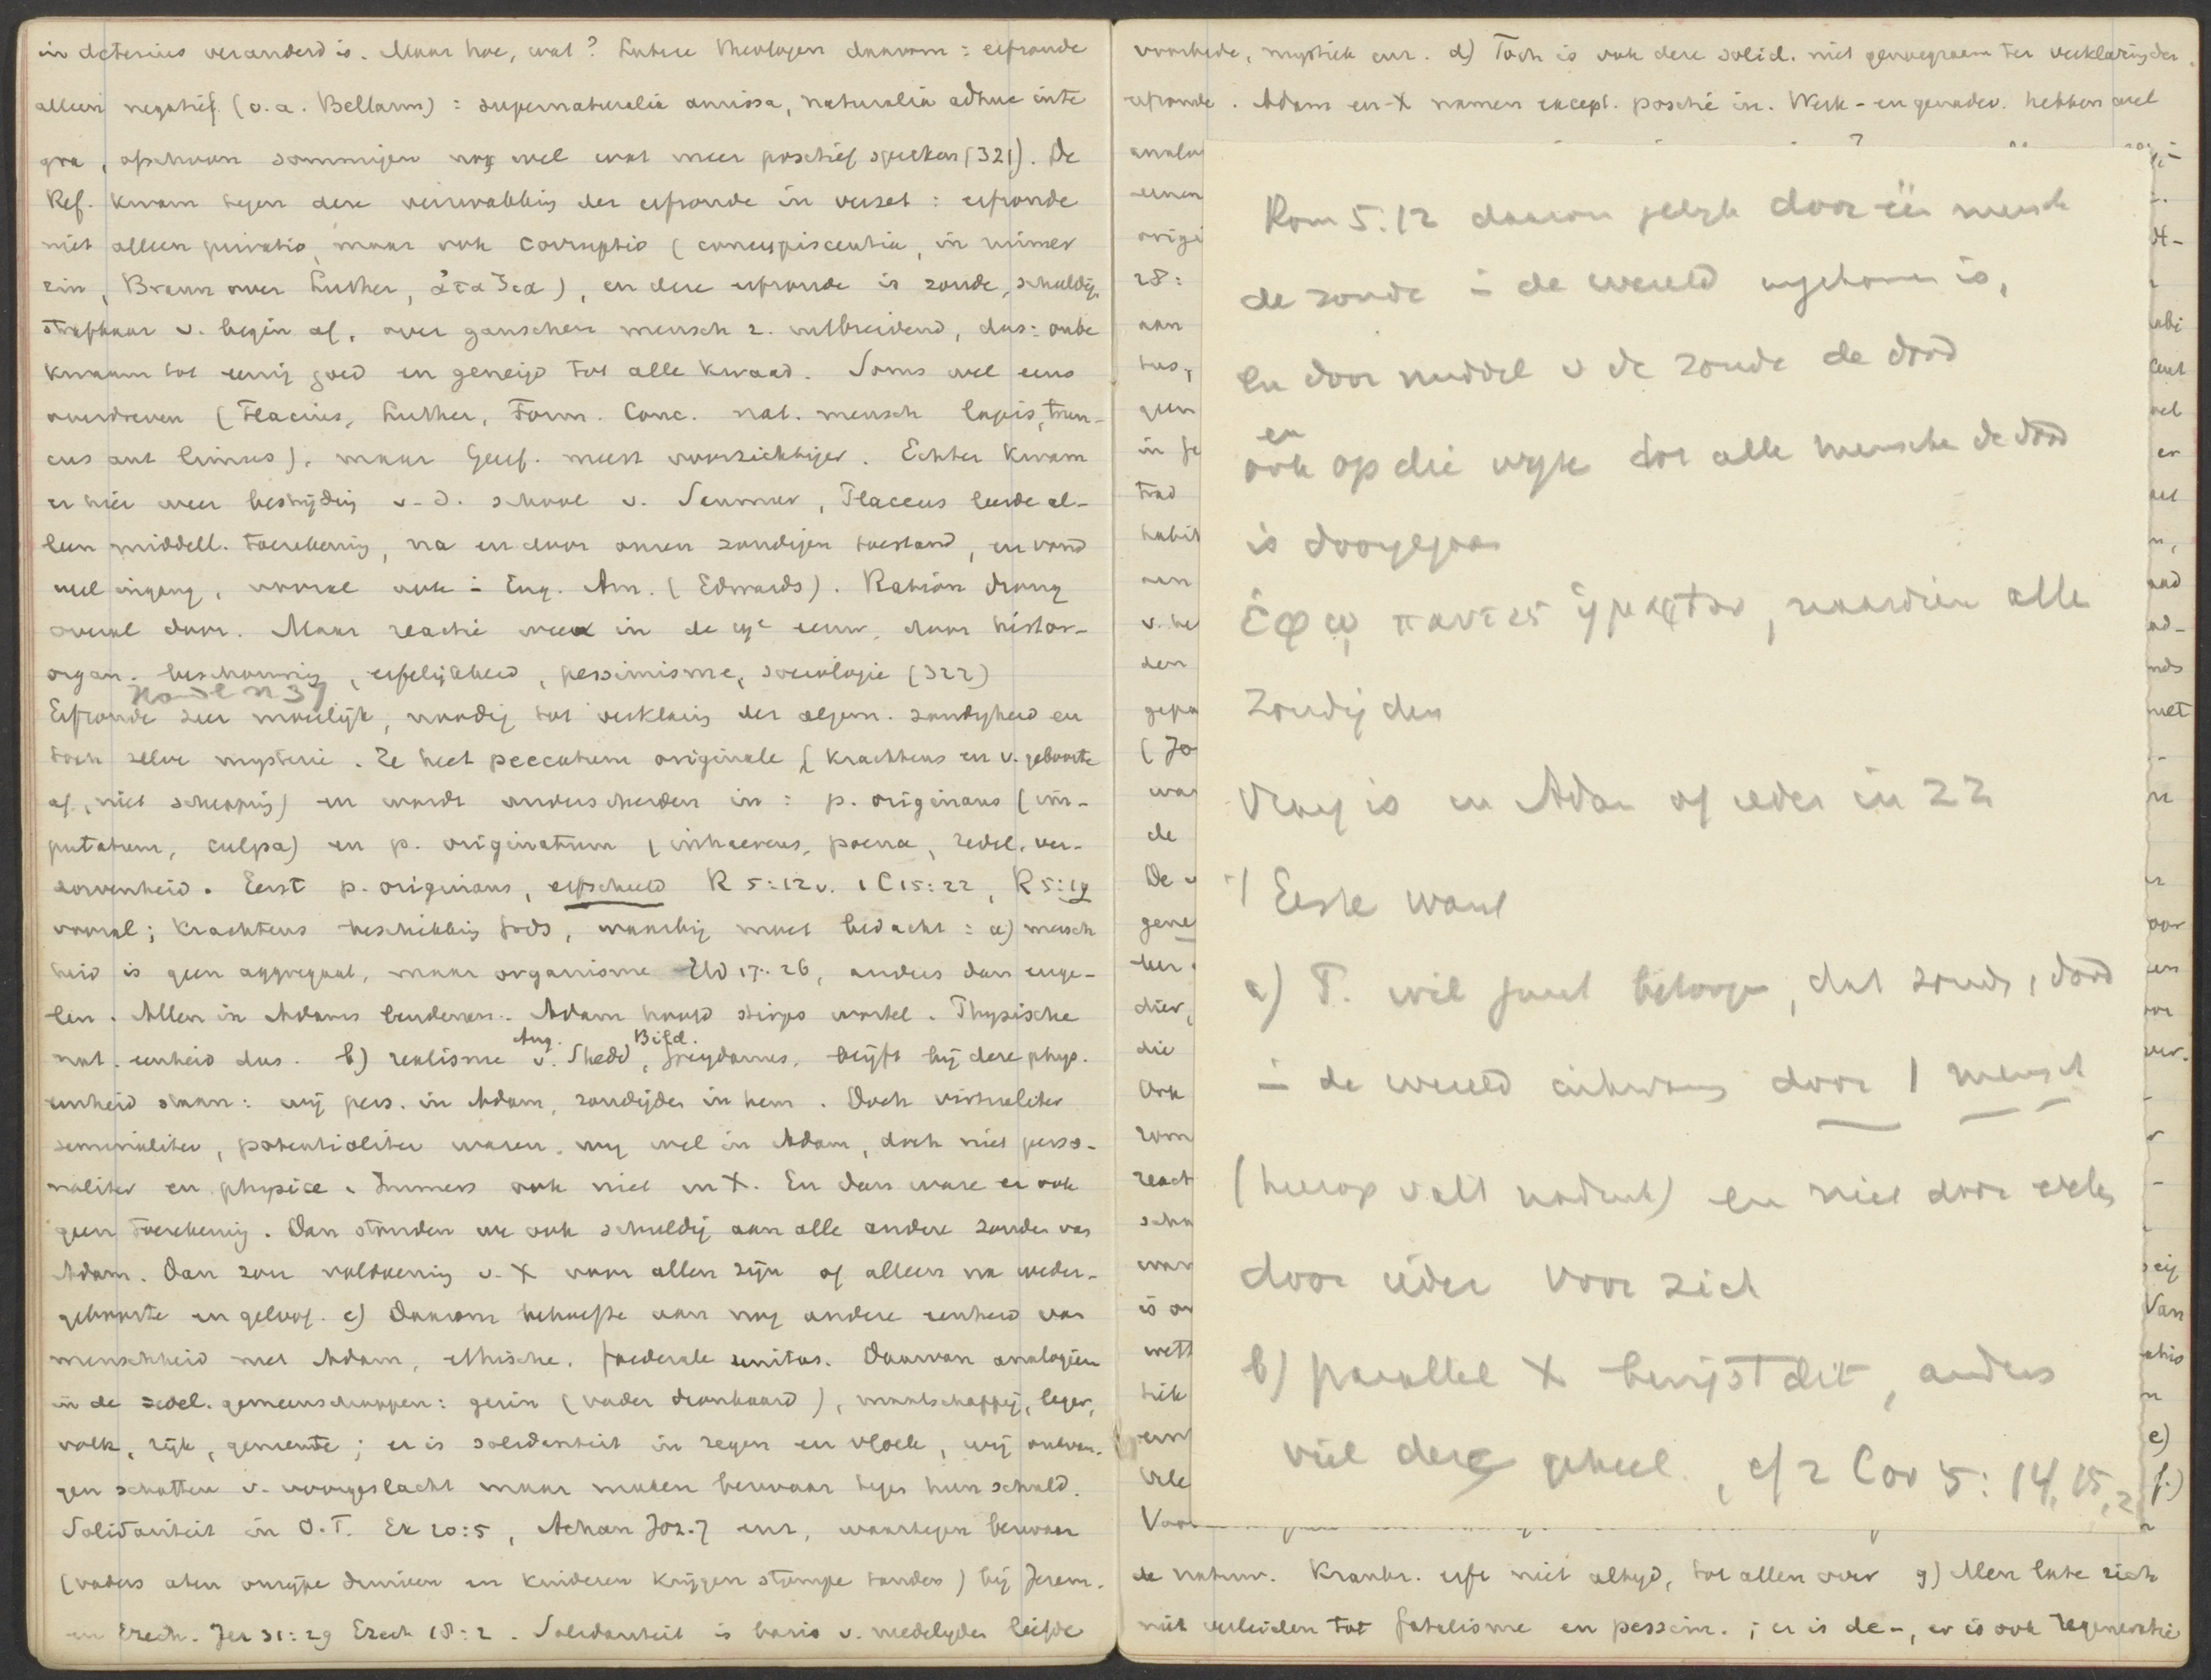 in deterius veranderd is. Maar hoe, wat? Latere theologen daarom: erfzonde
alleen negatief (o.a. Bellarm): supernaturalia amissa, naturalia adhuc inte
gra, ofschoon sommigen nog wel wat meer positief spreken (321). De
Ref. kwam tegen deze verzwakking der erfzonde in verzet: erfzonde
niet alleen privatio, maar ook corruptio (concupiscentia, in ruimer
zin, Braun over Luther, ἀταξια), en deze erfzonde is zonde, schuldig,
strafbaar v. begin af, over ganschen mensch z. uitbreidend, dus: onbe
kwaam tot eenig goed en geneigd tot alle kwaad. Soms wel eens
overdreven (Flacius, Luther, Form. Conc. nat. mensch lapis, trun-
cus aut limus), maar Geref. meest voorzichtiger. Echter kwam
er hier weer bestrijding v. d. school v. Saumur, Placeus leerde al-
leen middell. toerekening, na en door onzen zondigen toestand, en vond
veel ingang, vooral ook in Eng. Am. (Edwards). Ration drong
overal door. Maar reactie weer in de 19e eeuw, door histor-
organ. beschouwing, erfelijkheid, pessimisme, sociologie (322)
Erfzonde zeer moeilijk, noodig tot verklaring der algem. zondigheid en
toch zelve mysterie. Ze heet peccatum originale (krachtens en v. geboorte
af, niet schepping) en wordt onderscheiden in: p. originans (im-
putatum, culpa) en p. originatum (inhaerens, poena, zedel. ver-
dorvenheid. Eerst p. originans, erfschuld R 5:12v. 1 C 15:22, R 5:19
vooral; krachtens beschikking Gods, waarbij moet bedacht: a) mensch
heid is geen aggregaat, maar organisme Hd 17:26, anders dan enge-
len. Allen in Adams lendenen. Adam hoofd stirps wortel. Physische
nat. eenheid dus. b) realisme Aug. v. Shedd, Bild. Greydanus, blijft bij deze phys.
eenheid staan: wij pers. in Adam, zondigden in hem. Doch virtualiter
seminaliter, potentialiter waren wij wel in Adam, doch niet perso-
naliter en physice. Immers ook niet in X. En dan ware er ook
geen toerekening. Dan stonden we ook schuldig aan alle andere zonden van
Adam. Dan zou voldoening v. X voor allen zijn of alleen na weder-
geboorte en geloof. c) Daarom behoefte aan nog andere eenheid van
menschheid met Adam, ethische, foederale unitas. Daarvan analogieën
in de zedel. gemeenschappen: gezin (vader dronkaard), maatschappij, leger,
volk, rijk, gemeente; er is solidariteit in zegen en vloek, wij ontvan-
gen schatten v. voorgeslacht maar maken bezwaar tegen hun schuld.
Solidariteit in O.T. Ex 20:5, Achan Joz. 7 enz, waartegen bezwaar
(vaders aten onrijpe druiven en kinderen krijgen stompe tanden) bij Jerem.
en Ezech. Jer 31:29 Ezech 18:2. Solidariteit is basis v. medelijden liefde
voorbede, mystiek enz. d) Toch is ook deze solid. niet genoegzaam ter verklaring der
erfzonde. Adam en X namen except. positie in. Werk- en genadev. hebben wel
Rom 5:12 daarom gelijk door één mensch
de zonde in de wereld ingekomen is,
en door middel v de zonde de dood
en
ook op die wijze tot alle menschen de dood
is doorgegaan
ἐφ ᾧ παντες ἡμαρτον, naardien alle
zondigden
Vraag is in Adam of ieder in zz
1 Eerste want
a) P. wil juist betoogen, dat zonde, dood
in de wereld inkwam door 1 mensch
(hierop valt nadruk) en niet door ieder
door ieder voor zich
b) parallel X bewijst dit, anders
viel deze geheel, cf 2 Cor 5:14, 15,
de natuur. Krankz. erft niet altijd, tot allen over g) Men late zich
niet verleiden tot fatalisme en pessim.; er is de-, er is ook regeneratie